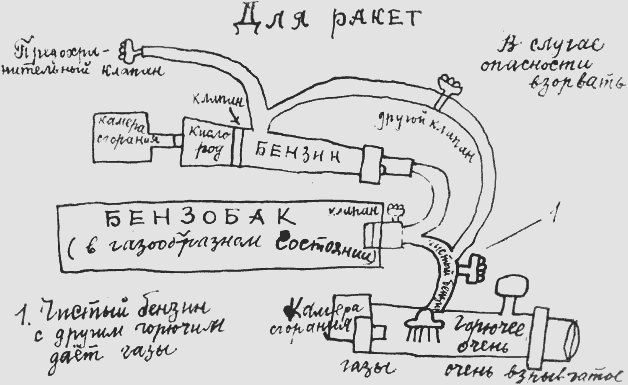 Для ракет
Предохра-
нительный клапан
В случае
опасности
взорвать
клапан
другой клапан
камера
сгорания
Кисло
род
БЕНЗИН
БЕНЗОБАК
(в газообразном состоянии)
клапан
чистый бензин
1
1. Чистый бензин
с другим горючим
даёт газы
Камера
сгорания
газы
Горючее
очень
очень взрывчатое